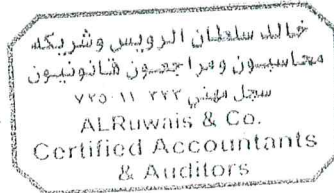 خالد سلطان الرويس وشريكه
محاسبون ومراجعون قانونيون
سجل مهني ٣٢٣ ١١ ٧٢٥
ALRuwais & Co.
Certified Accountants
& Auditors